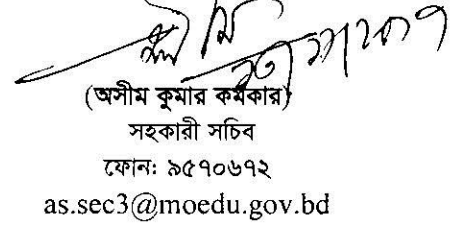 (অসীম কুমার কর্মকার)
সহকারী সচিব
ফোনঃ ৯৫৭০৬৭২
as.sec3@moedu.gov.bd